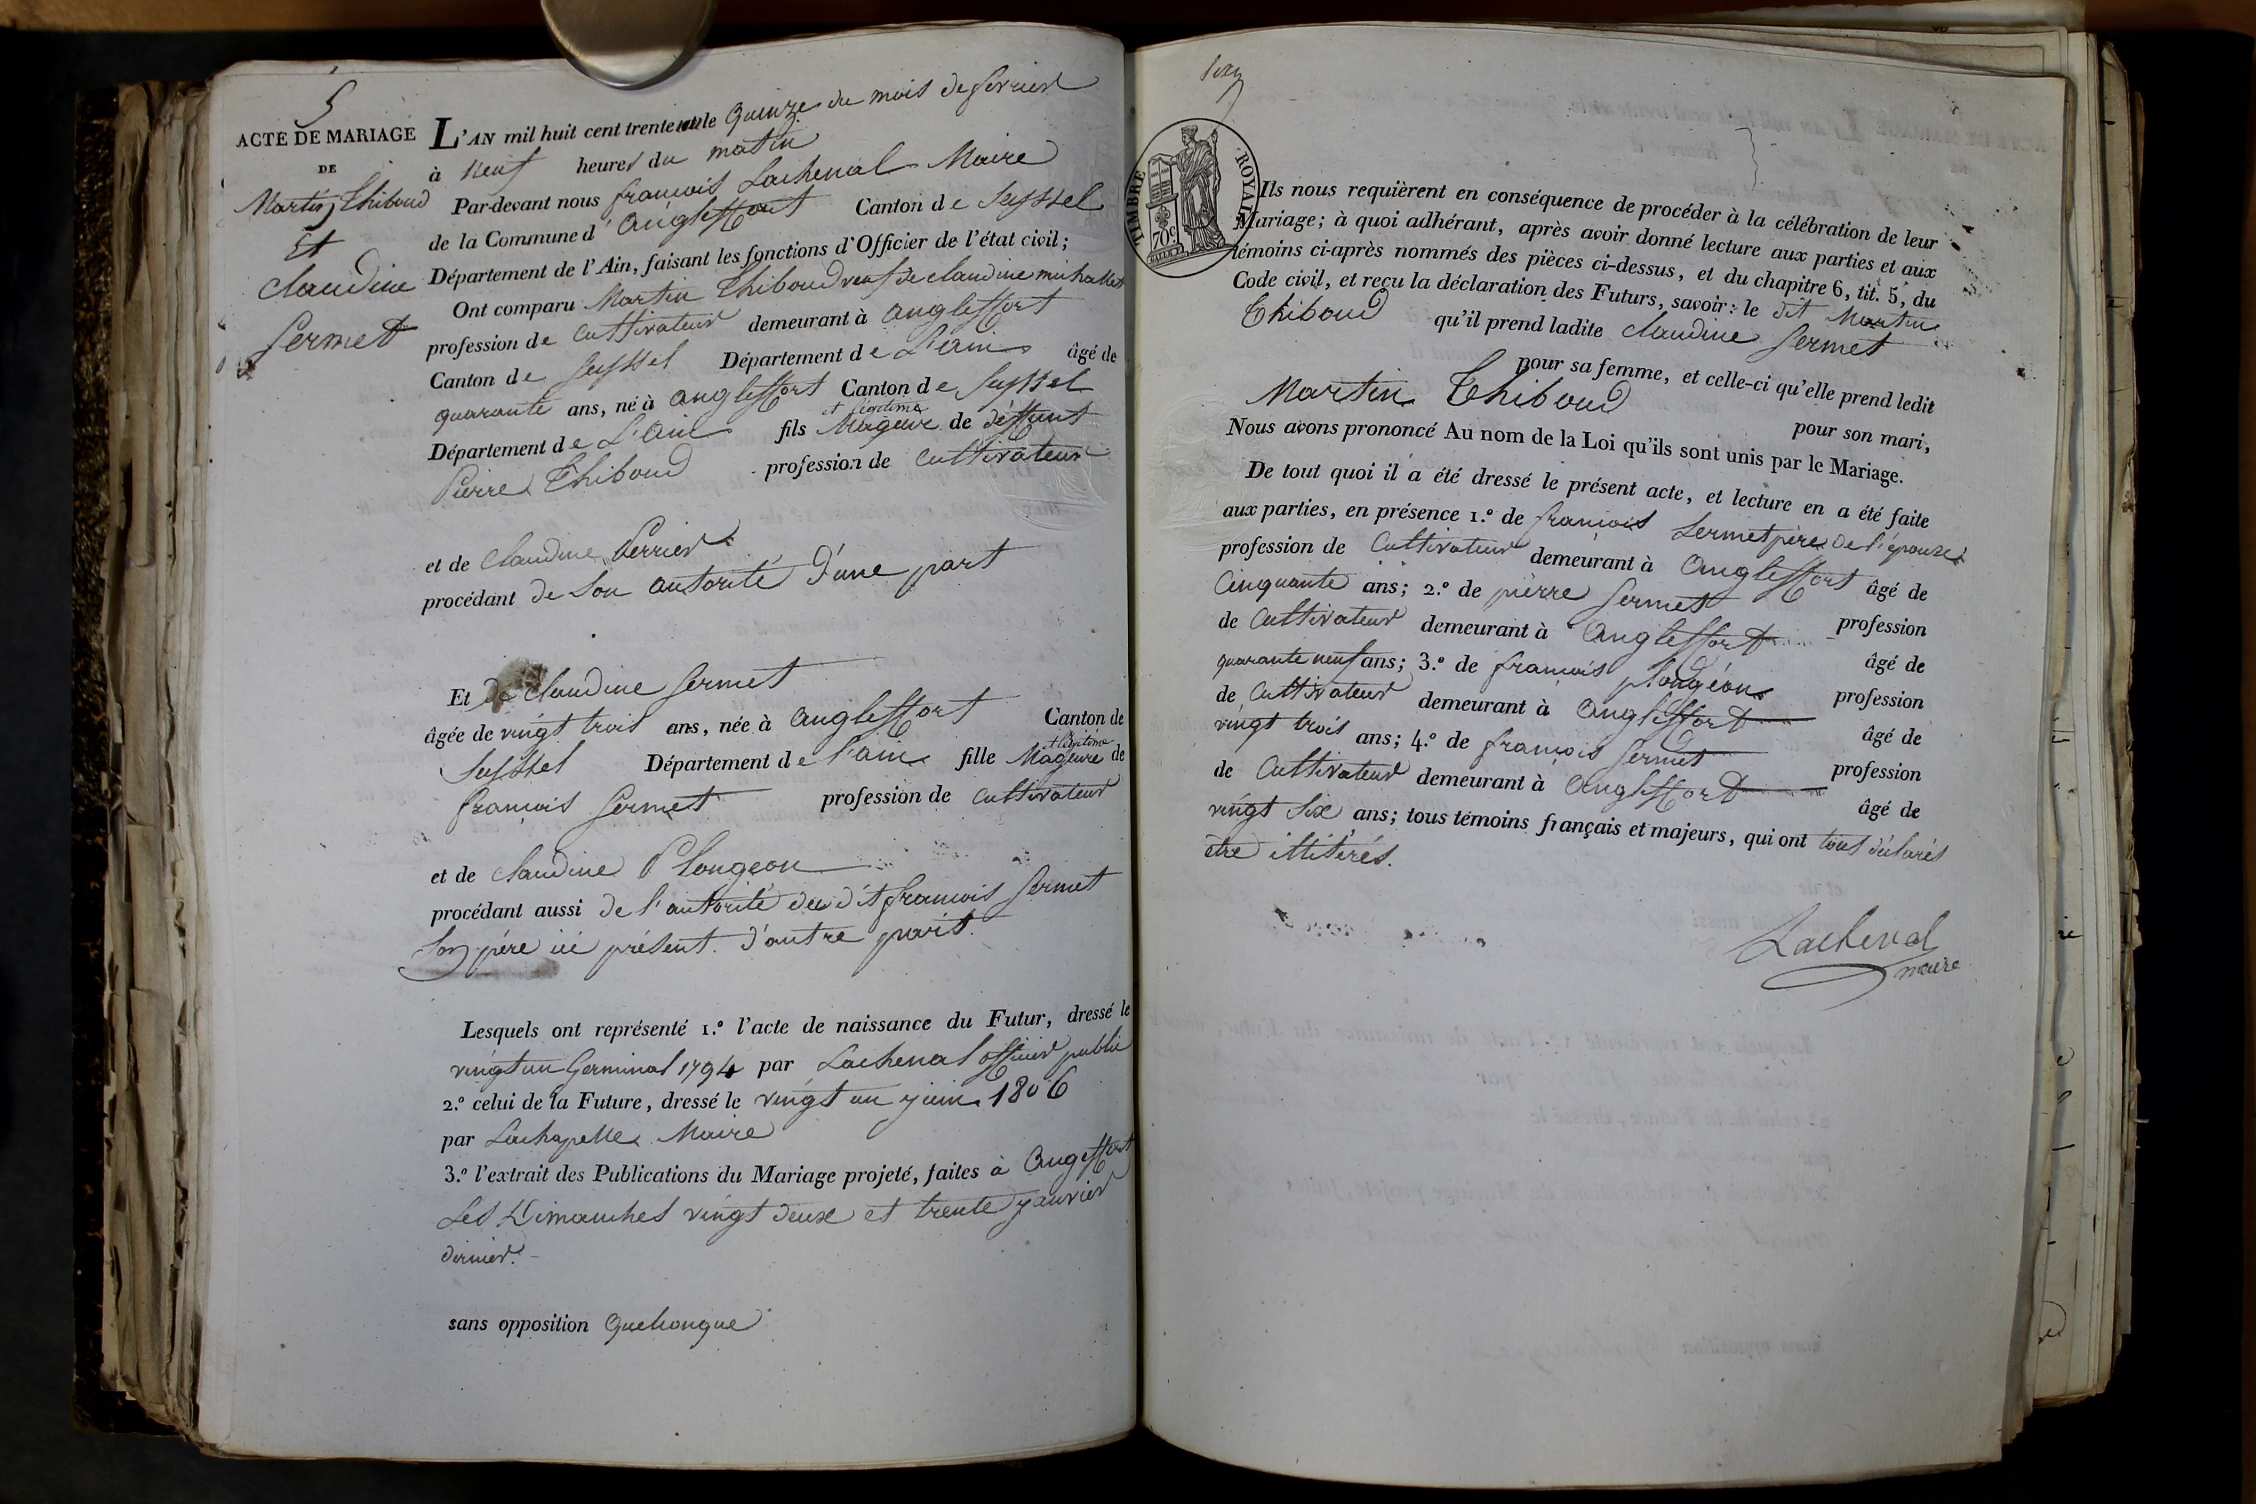 5
ACTE DE MARIAGE
DE
Martin Thiboud
Et
Claudine
Sermet
L'AN mil huit cent trente le Quinze du mois de fevrier
à Neuf heures du matin
Par-devant nous françois Lachenal Maire
de la Commune d'angleffort Canton de Seyssel
Département de l'Ain, faisant les fonctions d'Officier de l'état civil;
Ont comparu Martin Thiboud veuf de claudine michallet
profession de cultivateur demeurant à angleffort
Canton de Seyssel Département de L'ain âgé de
quarante ans, né à angleffort Canton de Seyssel
et légitime
Département de L'ain fils Mageure de deffunt
Pierre Thiboud profession de cultivateur
et de claudine Perrier
procédant de Son autorité d'une part
Et de claudine Sermet
âgée de vingt trois ans, née à angleffort Canton de
et légitime
Seyssel Département de l'ain fille Mageure de
françois Sermet profession de cultivateur
et de claudine Plongeon
procédant aussi de l'autorité du dit françois Sermet
Son père ici présent d'autre part.
Lesquels ont représenté 1.º l'acte de naissance du Futur, dressé le
vingt un Germinal 1794 par Lachenal officier public
2.º celui de la Future, dressé le vingt un juin 1806
par Lachapelle Maire
3.º l'extrait des Publications du Mariage projeté, faites à Angeffort
Les Dimanches vingt deux et trente janvier
dernier.
sans opposition Quelconque
TIMBRE ROYAL
70 c.
Ils nous requièrent en conséquence de procéder à la célébration de leur
Mariage; à quoi adhérant, après avoir donné lecture aux parties et aux
témoins ci-après nommés des pièces ci-dessus, et du chapitre 6, tit. 5, du
Code civil, et reçu la déclaration des Futurs, savoir: le dit Martin
Thiboud qu'il prend ladite claudine Sermet
pour sa femme, et celle-ci qu'elle prend ledit
Martin Thiboud pour son mari,
Nous avons prononcé Au nom de la Loi qu'ils sont unis par le Mariage.
De tout quoi il a été dressé le présent acte, et lecture en a été faite
aux parties, en présence 1.º de françois Sermet père de l'épouse
profession de Cultivateur demeurant à angleffort âgé de
Cinquante ans; 2.º de pierre Sermet profession
de Cultivateur demeurant à angleffort âgé de
quarante neuf ans; 3.º de françois plongéon profession
de Cultivateur demeurant à angleffort âgé de
vingt trois ans; 4.º de françois Sermet profession
de Cultivateur demeurant à angleffort âgé de
vingt Six ans; tous témoins français et majeurs, qui ont tous déclarés
être illitérés.
Lachenal
maire